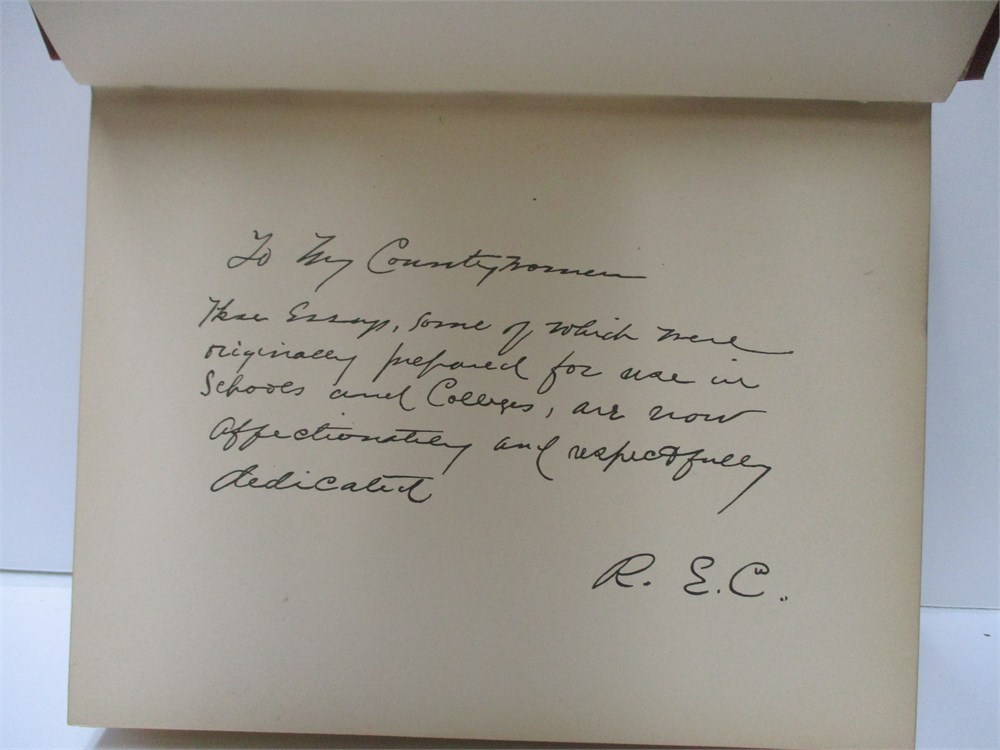 To My Countrywomen
These Essays, some of which were
originally prepared for use in
Schools and Colleges, are now
affectionately and respectfully
dedicated
R. E. C.